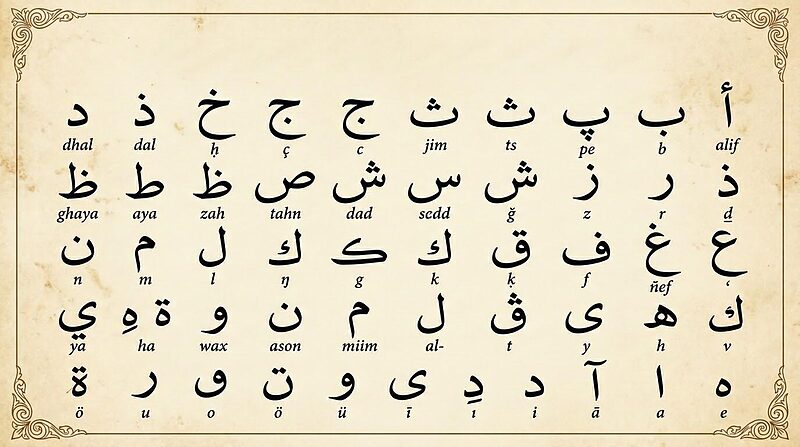 أ ب پ ث ث ج ج خ ذ د
dhal dal ḥ ç c jim ts pe b alif
ذ ر ز ش س ش ص ظ ط ظ
ghaya aya zah tahn dad scdd ğ z r ḏ
ع غ ف ق ك ک ك ل م ن
n m l ŋ g k ḳ f ñef ʿ
ك ھ ى ڨ ل م ن و ة هِ ي
ya ha wax ason miim al- t y h v
ه ا آ د دِ ى و ت و ر ة
ö u o ö ü ī ı i ā a e